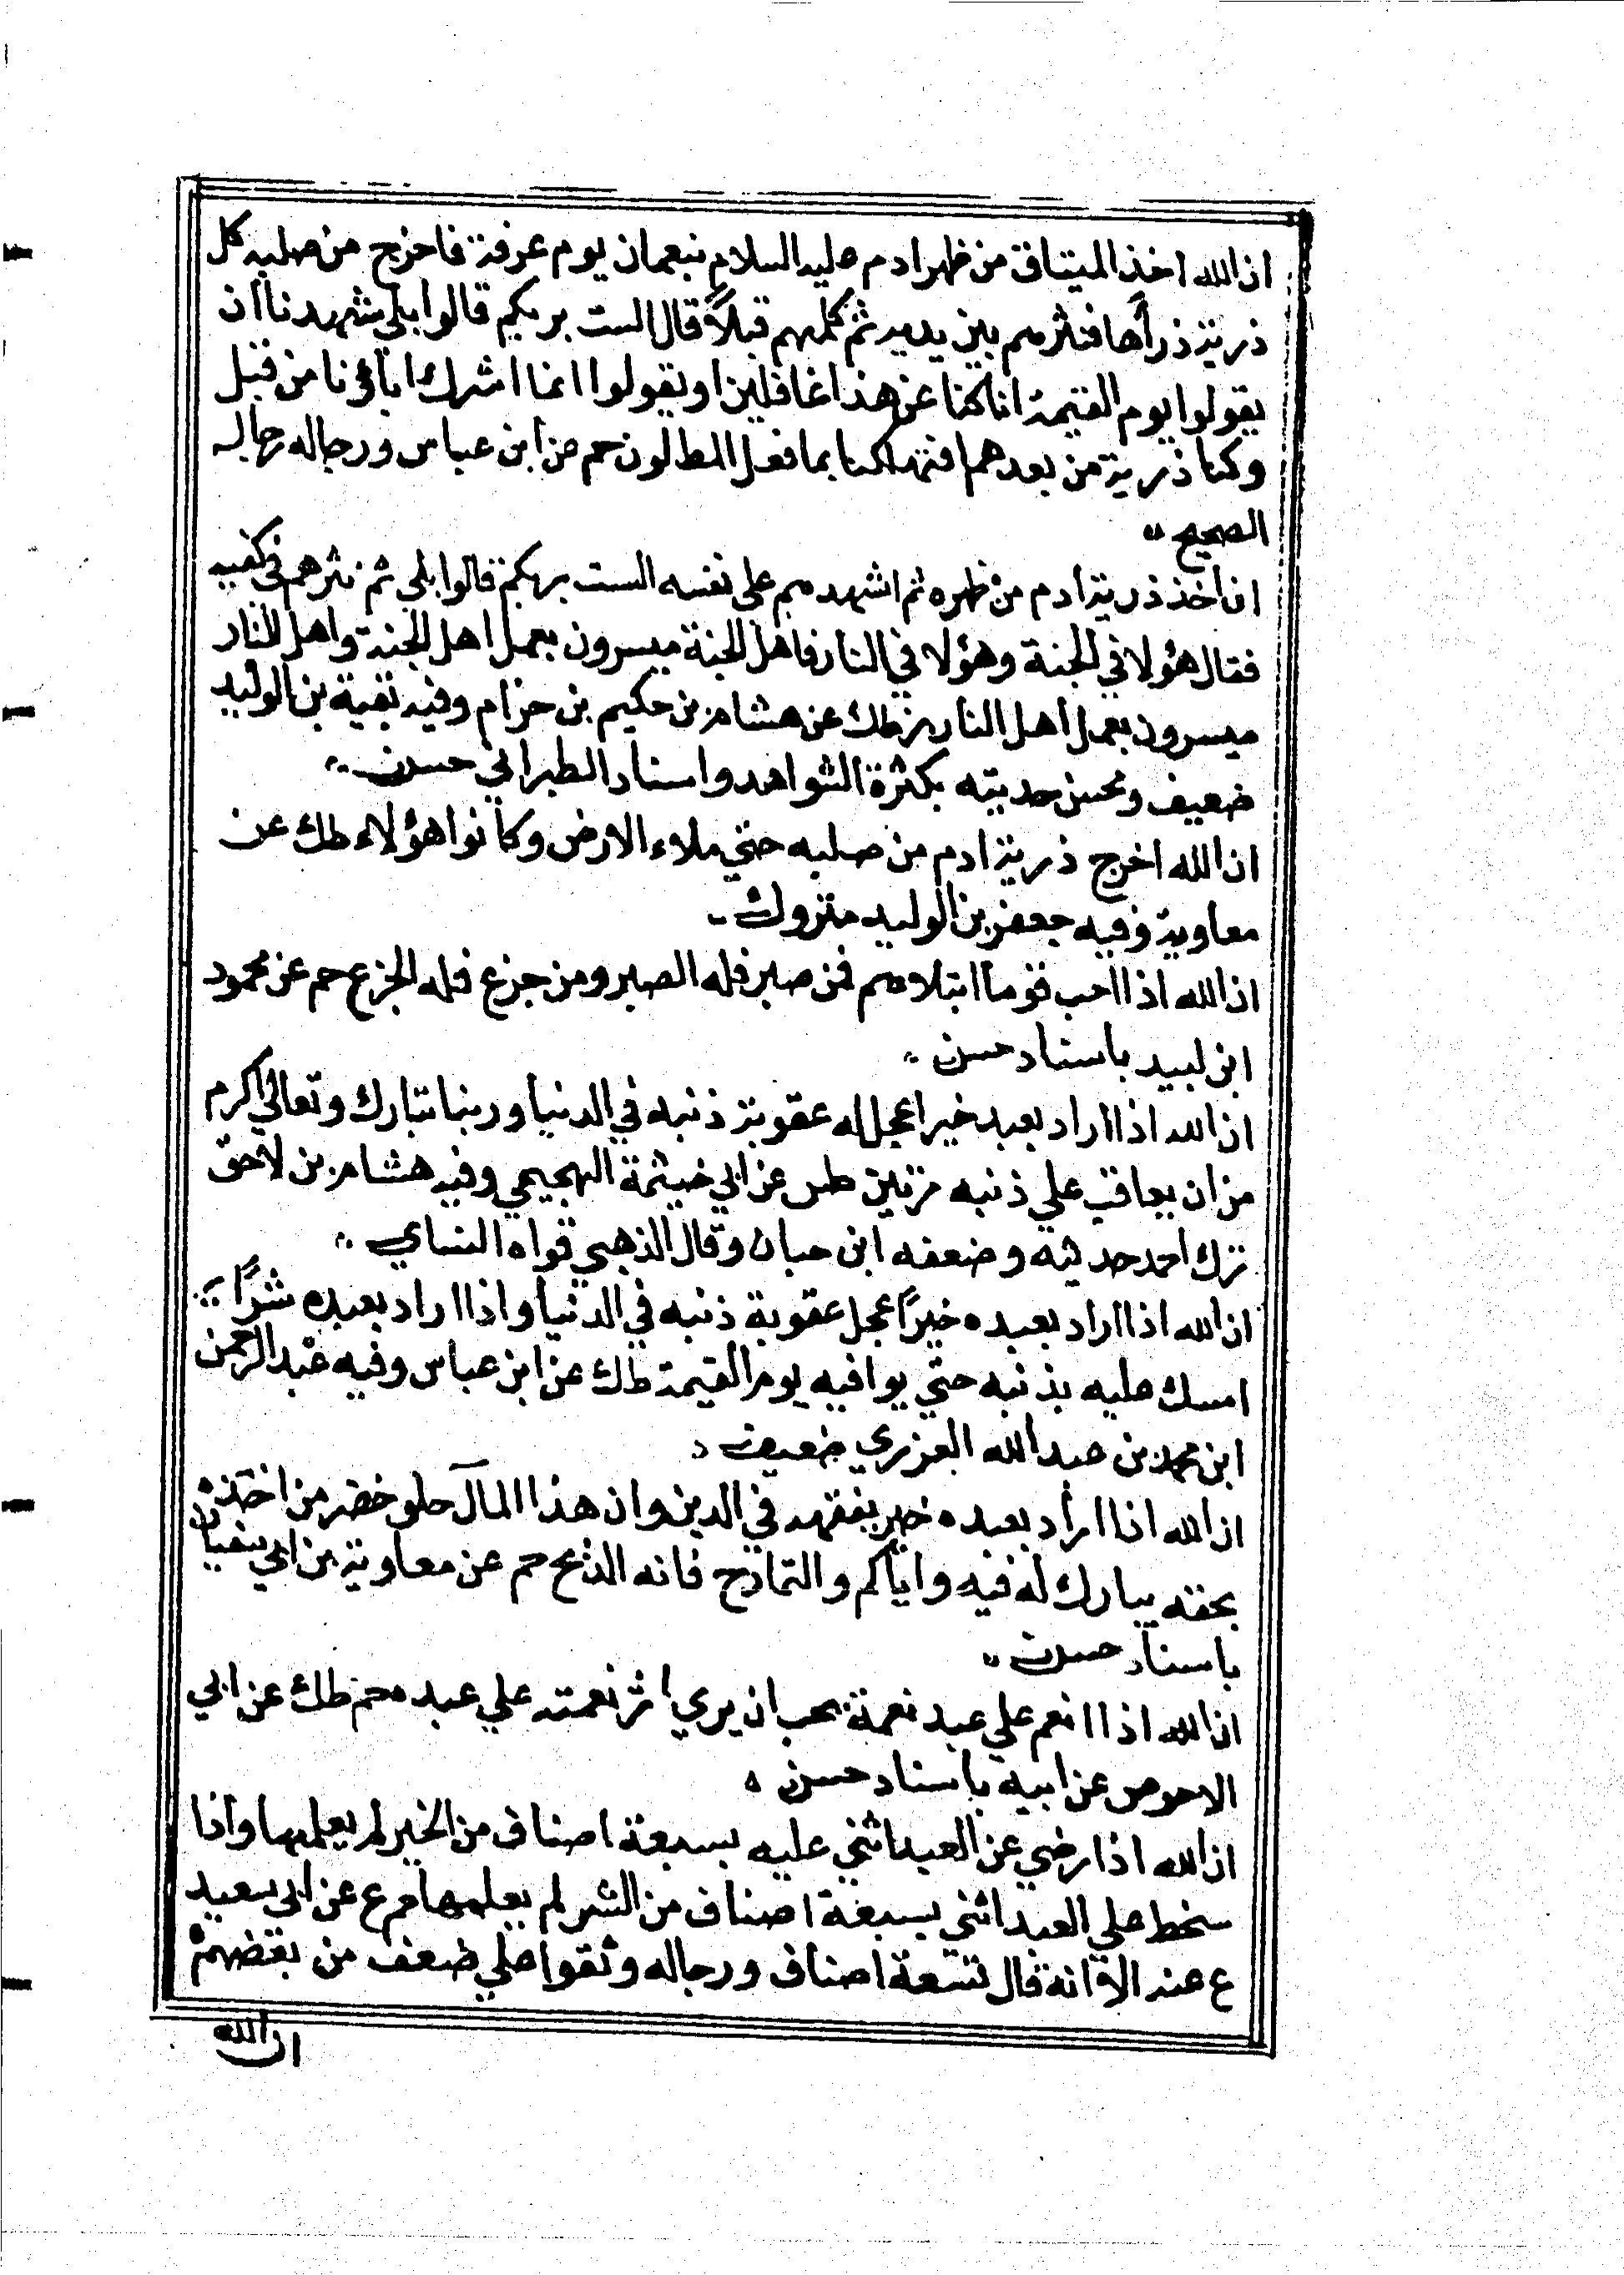 ان الله اخذ الميتاق من ظهر ادم عليه السلام بنعمان يوم عرفة فاخرج من صلبه كل
ذرية ذرأها فنثرهم بين يديه ثم كلمهم قبلاً قال الست بربكم قالوا بلى شهدنا ان
يقولوا يوم القيمة انا كنا عن هذا غافلين او يقولوا انما اشرك اباؤنا من قبل
وكنا ذرية من بعدهم افتهلكنا بما فعل المبطلون حم عن ابن عباس ورجاله رجال
الصحيح
ان اخذ ذرية ادم من ظهره ثم اشهدهم على نفسه الست بربكم قالوا بلى ثم نثرهم في كفيه
فقال هؤلا في الجنة وهؤلا في النار فاهل الجنة ميسرون بعمل اهل الجنة واهل النار
ميسرون بعمل اهل النار بز طك عن هشام بن حكيم بن حزام وفيه بقية بن الوليد
ضعيف ويحسن حديثه بكثرة الشواهد واسناد الطبراني حسن
ان الله اخرج ذرية ادم من صلبه حتي ملاء الارض وكانوا هؤلاء طك عن
معاوية وفيه جعفر بن الوليد متروك
ان الله اذا احب قوما ابتلاهم فمن صبر فله الصبر ومن جزع فله الجزع حم عن محمود
ابن لبيد باسناد حسن
ان الله اذا اراد بعبد خيرا عجل له عقوبة ذنبه في الدنيا وربنا تبارك وتعالي اكرم
من ان يعاقب علي ذنبه مرتين طس عن ابي خيثمة الهجيمي وفيه هشام بن لاحق
ترك احمد حديثه وضعفه ابن حبان وقال الذهبي قواه النساي
ان الله اذا اراد بعبده خيرًا عجل عقوبة ذنبه في الدنيا واذا اراد بعبده شرًا
امسك عليه بذنبه حتي يوافيه يوم القيمة طك عن ابن عباس وفيه عبد الرحمن
ابن محمد بن عبد الله العزري ضعيف
ان الله اذا اراد بعبده خير يفقهه في الدين وان هذا المال حلو خضر من اخذه
بحقه يبارك له فيه واياكم والتمادح فانه الذبح حم عن معاوية بن ابي سفيان
باسناد حسن
ان الله اذا انعم علي عبد نعمة يحب ان يري اثر نعمته علي عبده حم طك عن ابي
الاحوص عن ابيه باسناد حسن
ان الله اذا رضي عن العبد اثني عليه بسبعة اصناف من الخير لم يعلمها واذا
سخط علي العبد اثني بسبعة اصناف من الشر لم يعلمها حم ع عن ابي سعيد
ع عنه الا انه قال تسعة اصناف ورجاله وثقوا علي ضعف من بعضهم
ان الله